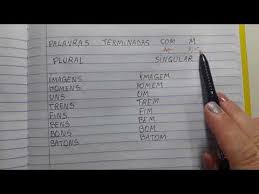 PALAVRAS TERMINADAS COM M
PLURAL SINGULAR
IMAGENS IMAGEM
HOMENS HOMEM
UNS UM
TRENS TREM
FINS FIM
BENS BEM
BONS BOM
BATONS BATOM